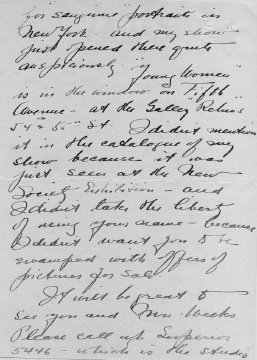 for sanguine portraits in
New York - and my show
just opened there quite
auspiciously - "
Young Women"
is in the window on Fifth
Avenue - at the Galley
54 St. I didn't mention
it in the catalogue of my
show because it was
just seen at the New
Society Exhibition - and
I didn't take the liberty
of using your name because
I didn't want you to be
swamped with offers of
pictures for sale.
It will be great to
see you and Mrs. Weeks
Please call up Superior
5446 - which is the studio